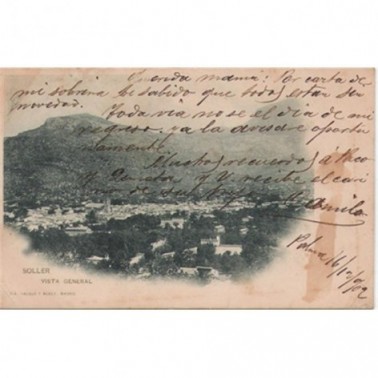 Querida mamá: Por carta de
mi sobrina he sabido que todos estan sin
novedad.
Toda via no se el dia de mi
regreso. ya la avisaré oportu
namente.
Muchos recuerdos á Paco
y y V. recibe el cari
ño de su hijo
Camilo
Palma 16/10/02
SOLLER
VISTA GENERAL